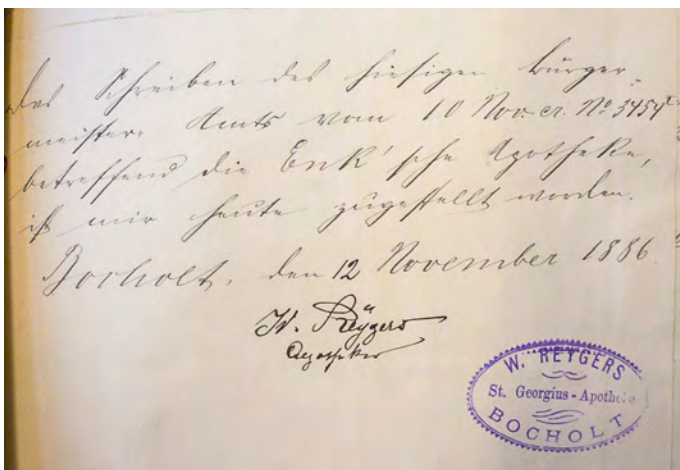 Das Schreiben des hiesigen Bürger-
meister Amts vom 10 Nov. cr. No 3454
betreffend die Enk'sche Apotheke,
ist mir heute zugestellt worden.
Bocholt, den 12 November 1886.
W. Reÿgers
Apotheker
W. REYGERS
St. Georgius-Apotheke
BOCHOLT